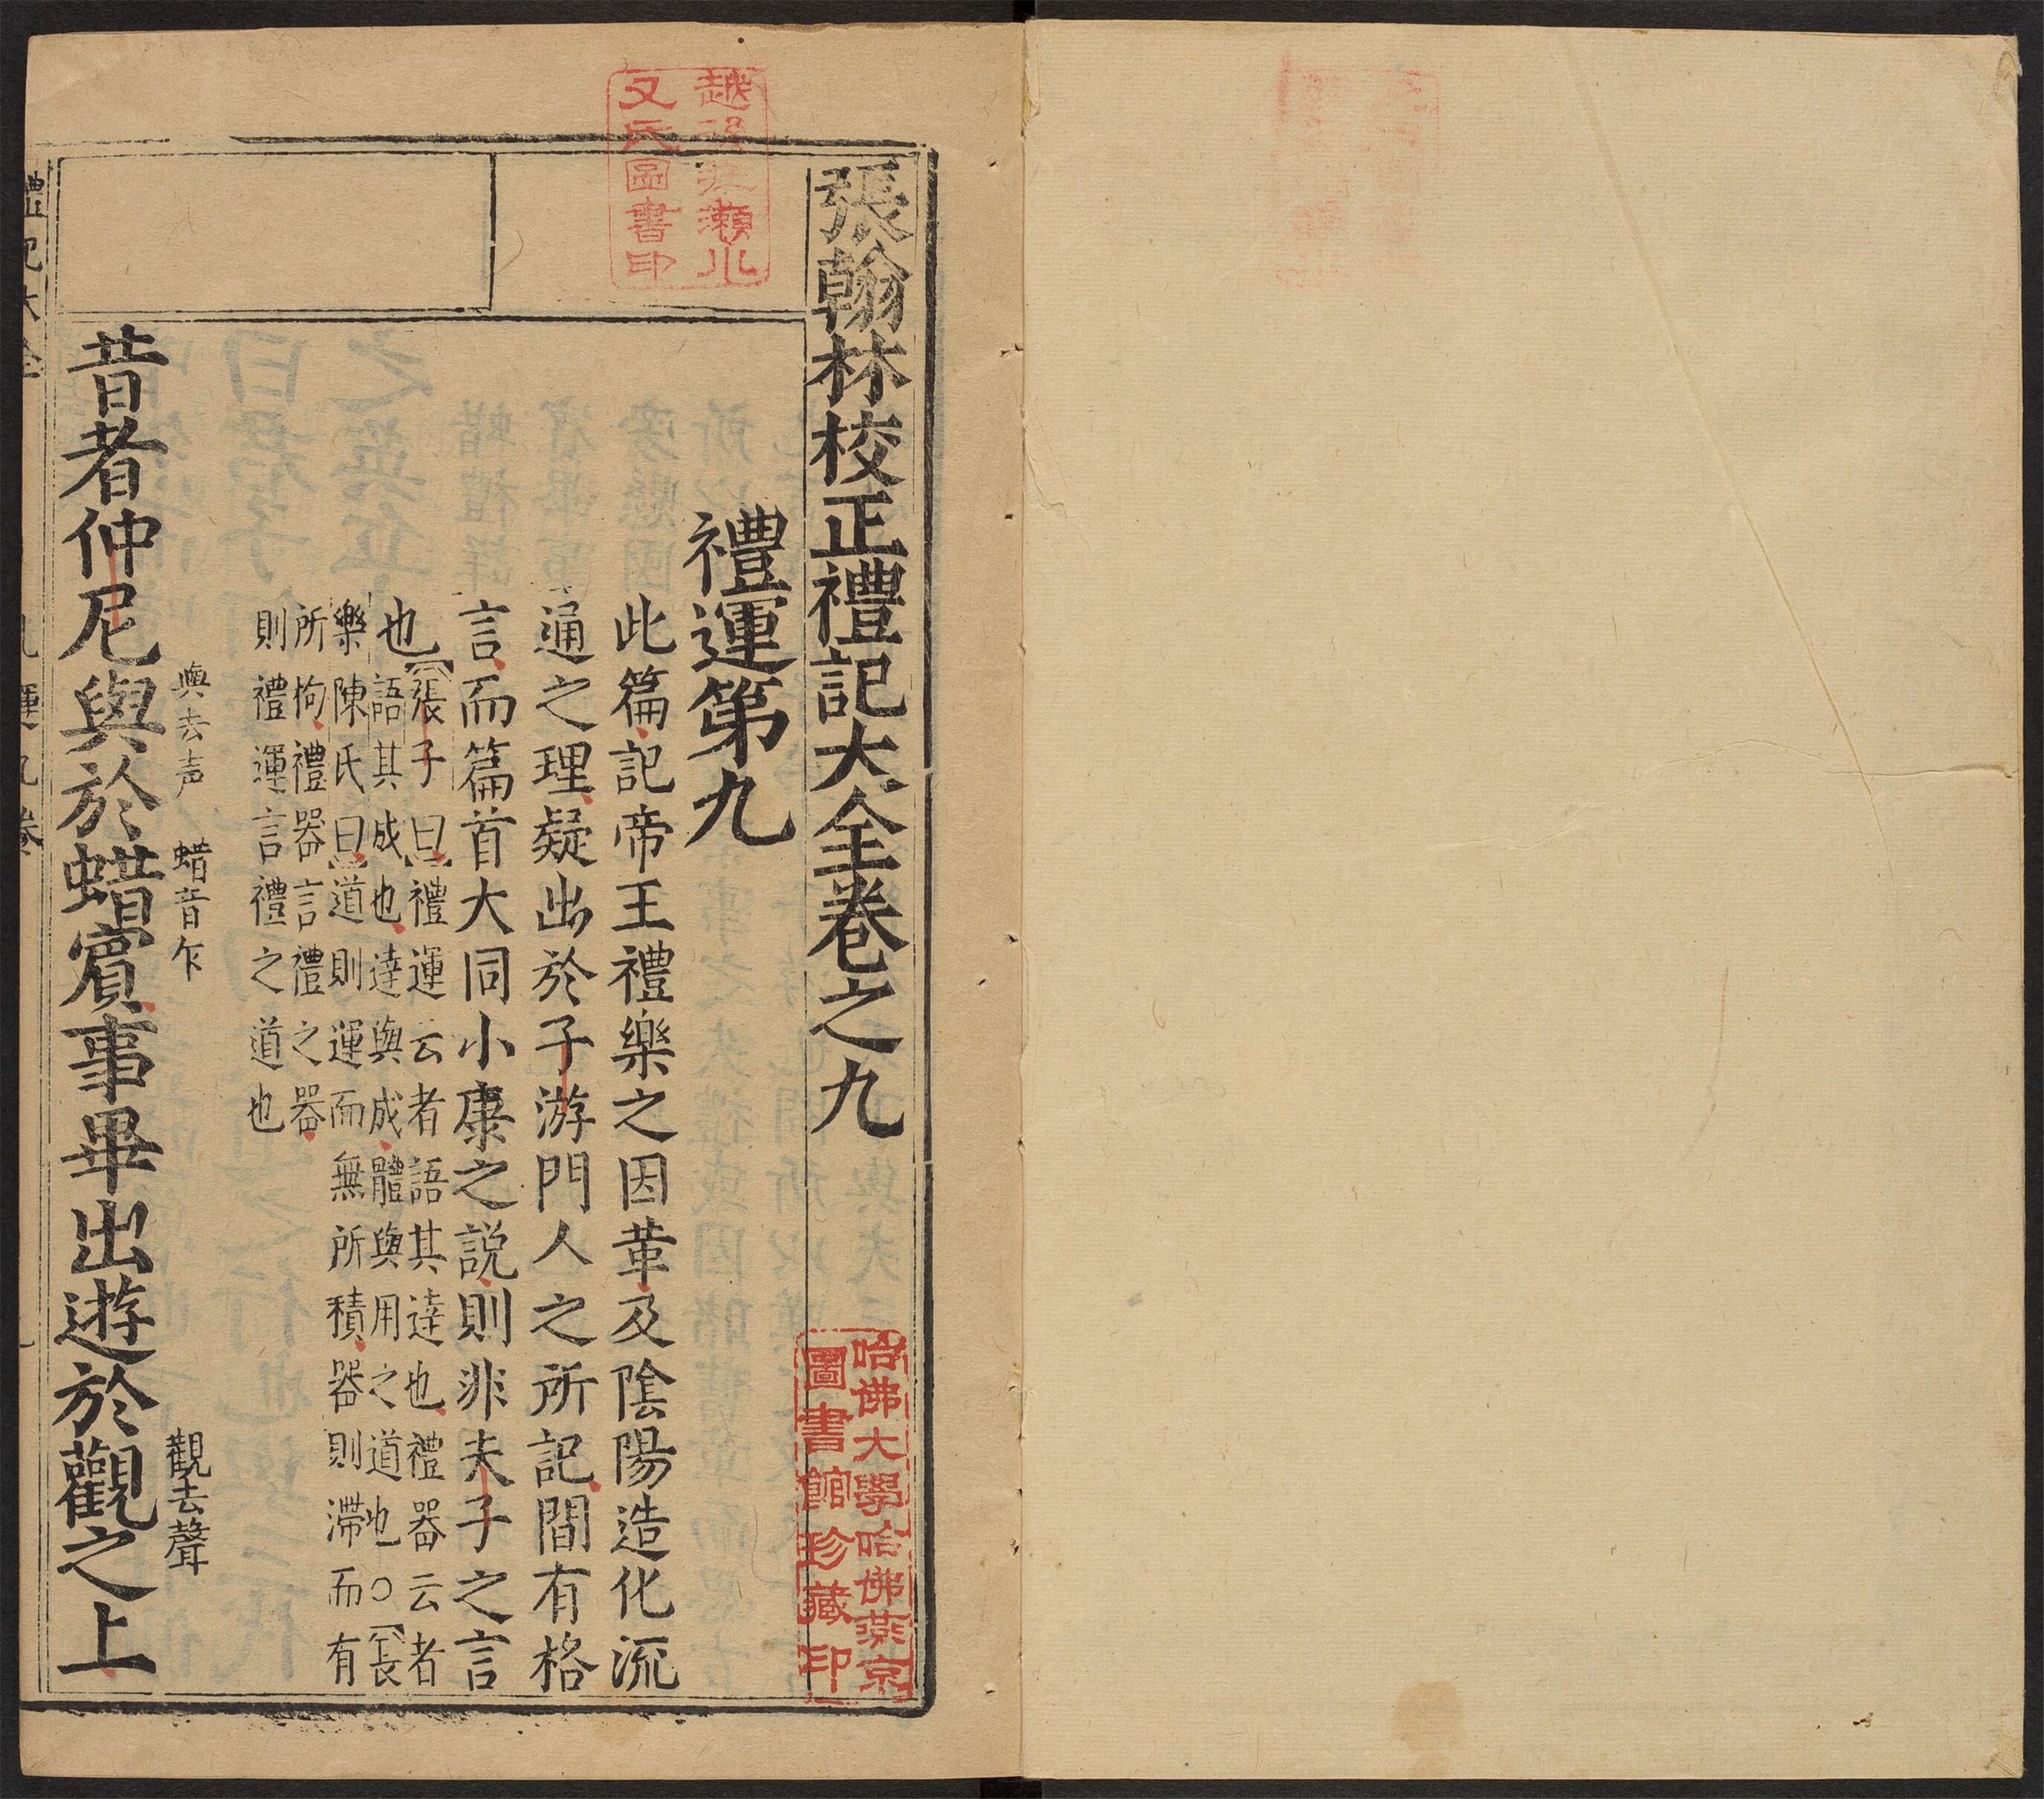 張翰林校正禮記大全卷之九
禮運第九
此篇記帝王禮樂之因革及陰陽造化流
通之理疑出於子游門人之所記間有格
言而篇首大同小康之説則非夫子之言
也【張子曰】禮運云者語其達也禮器云者
語其成也達與成體與用之道也○【長
樂陳氏曰】道則運而無所積器則滯而有
所拘禮器言禮之器
則禮運言禮之道也
與去声 蜡音乍 觀去聲
昔者仲尼與於蜡賓事畢出遊於觀之上
哈佛大學哈佛燕京
圖書館珍藏印
瀨
又氏圖書印